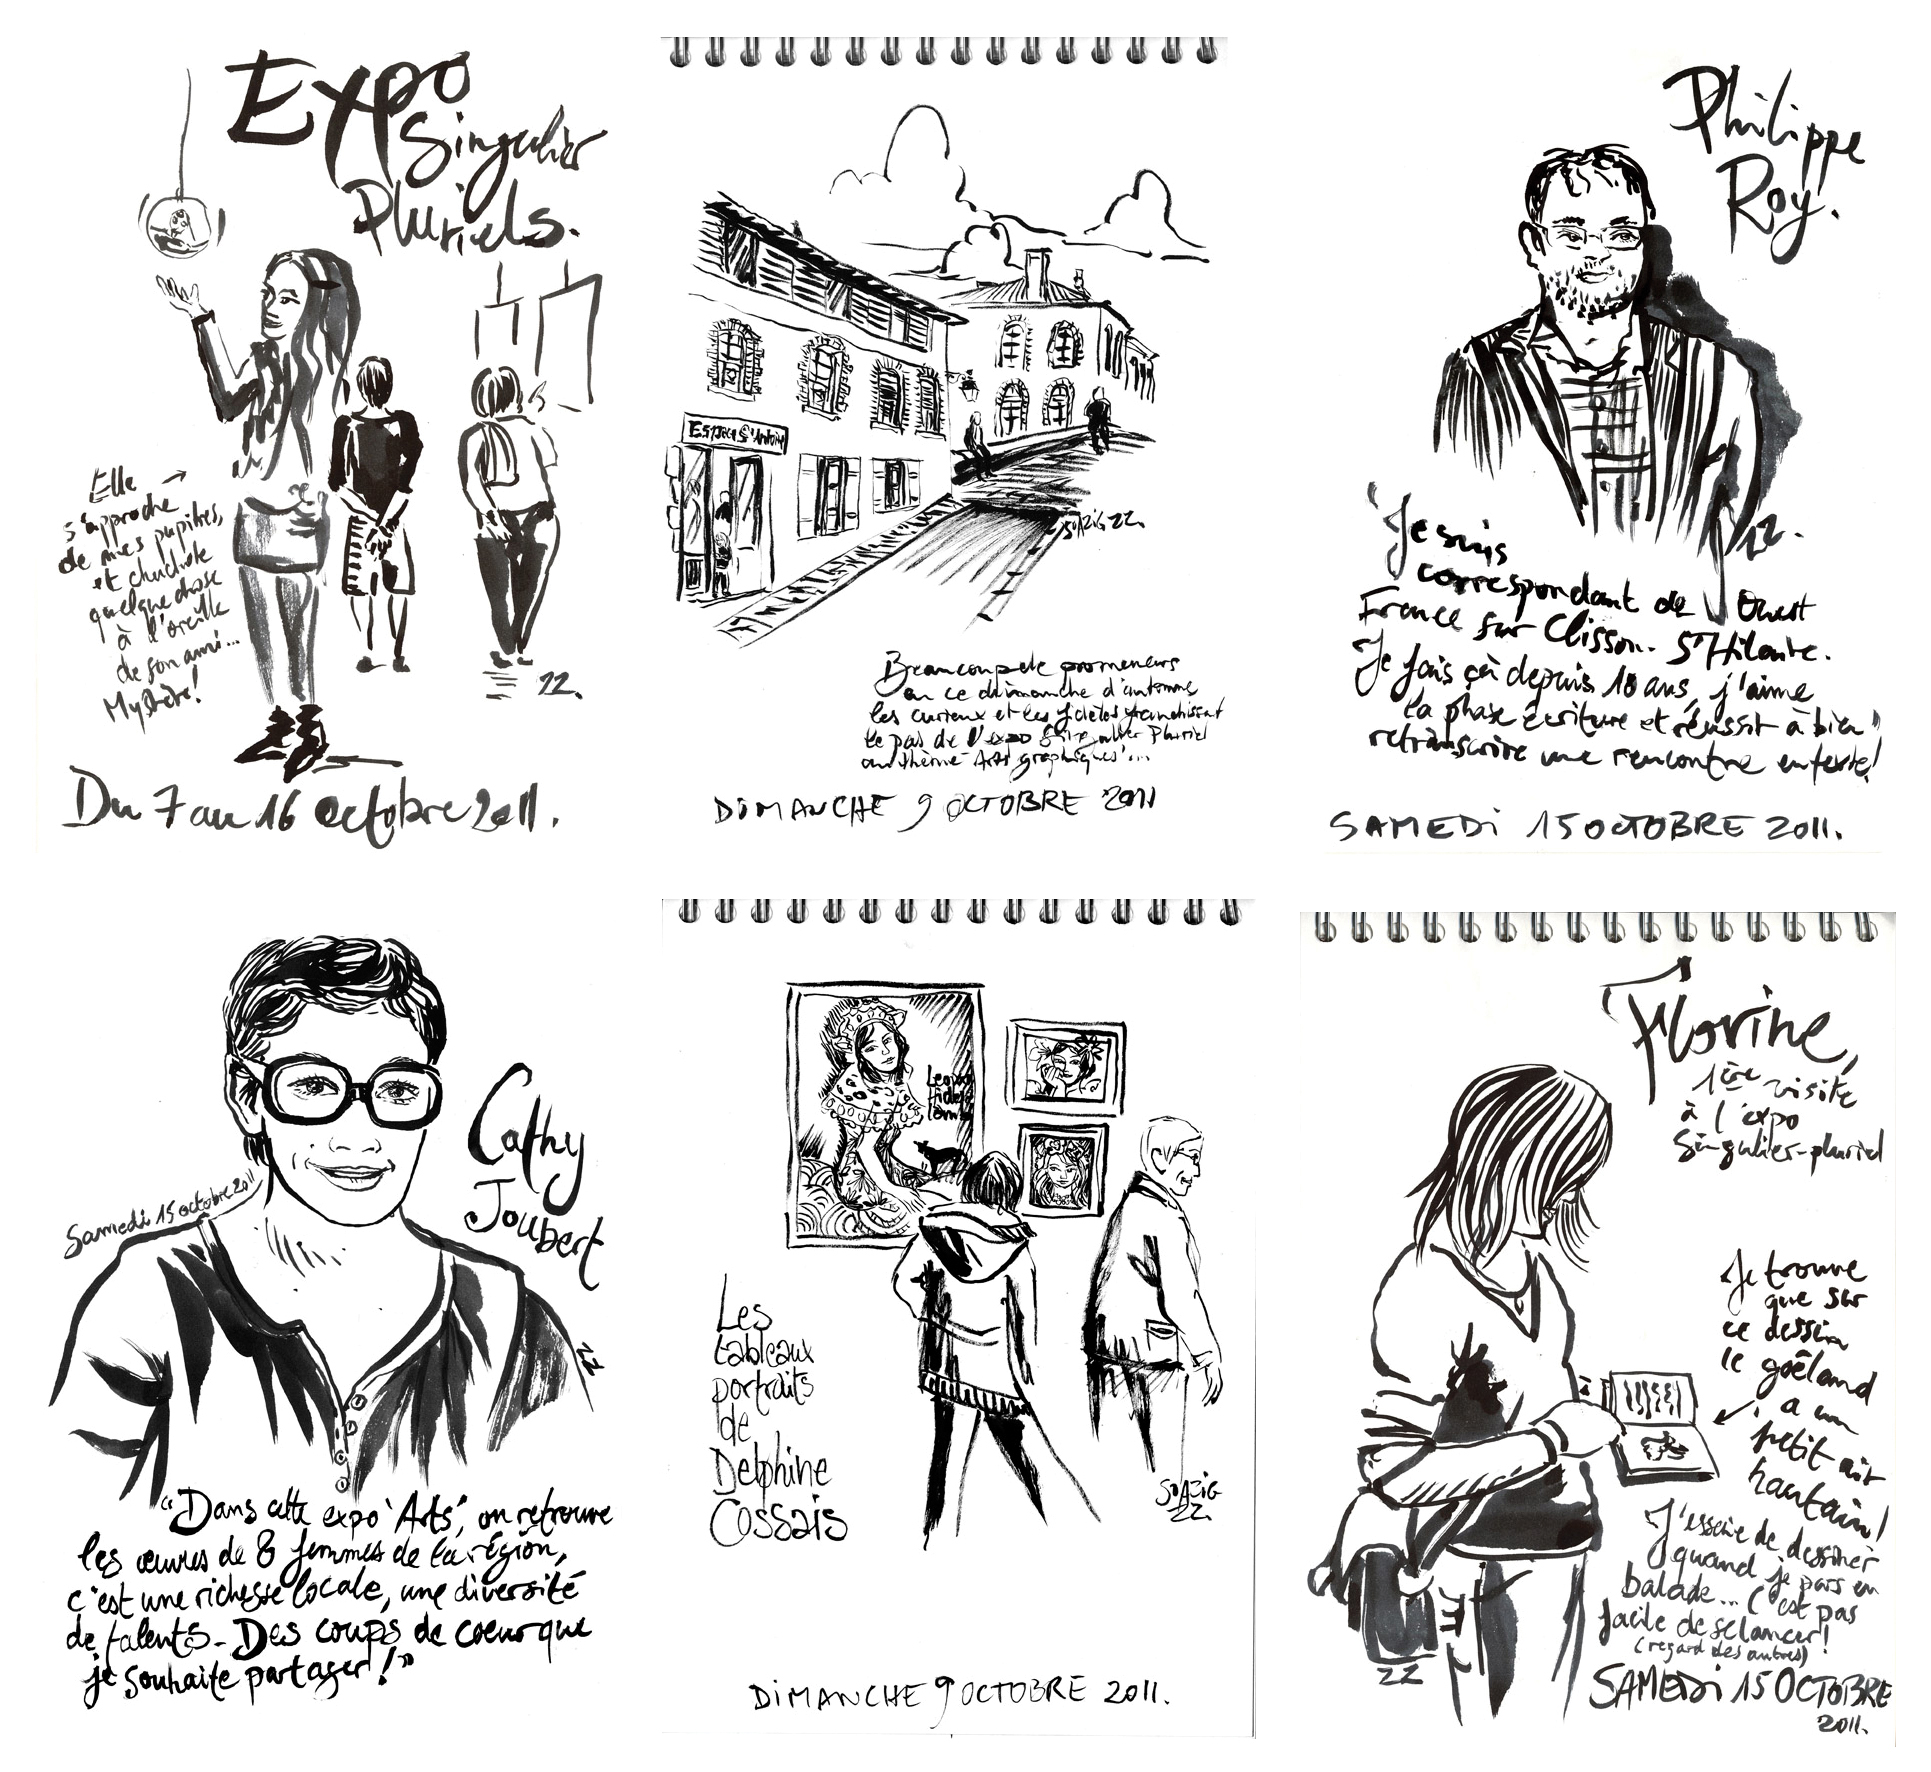 Expo
Singulier
Pluriels.
Elle
s'approche
de mes pupitres,
et chuchote
quelque chose
à l'oreille
de son ami...
Mystère!
22.
Du 7 au 16 octobre 2011.
Espace St Antoine
SOAZIG 22.
Beaucoup de promeneurs
en ce dimanche d'automne
les curieux et les fidèles franchissent
le pas de l'expo Singulier Pluriel
au thème "Arts graphiques"...
DIMANCHE 9 OCTOBRE 2011
Philippe
Roy.
22.
"Je suis
correspondant de Ouest
France sur Clisson. St Hilaire.
Je fais çà depuis 10 ans, j'aime
la phase écriture et réussir à bien
retranscrire une rencontre en texte!"
SAMEDI 15 OCTOBRE 2011.
Cathy
Joubert
Samedi 15 octobre 2011
22
"Dans cette expo 'Arts', on retrouve
les œuvres de 8 femmes de la région,
c'est une richesse locale, une diversité
de talents. Des coups de coeur que
je souhaite partager!"
Les
tableaux
portraits
de
Delphine
Cossais
SOAZIG
22.
DIMANCHE 9 OCTOBRE 2011.
Florine,
1ère visite
à l'expo
Singulier-pluriel
Je trouve
que sur
ce dessin
le goéland
a un
petit air
hautain!
J'essaie de dessiner
quand je pars en
balade... C'est pas
facile de se lancer!
(regard des autres)
22
SAMEDI 15 OCTOBRE
2011.